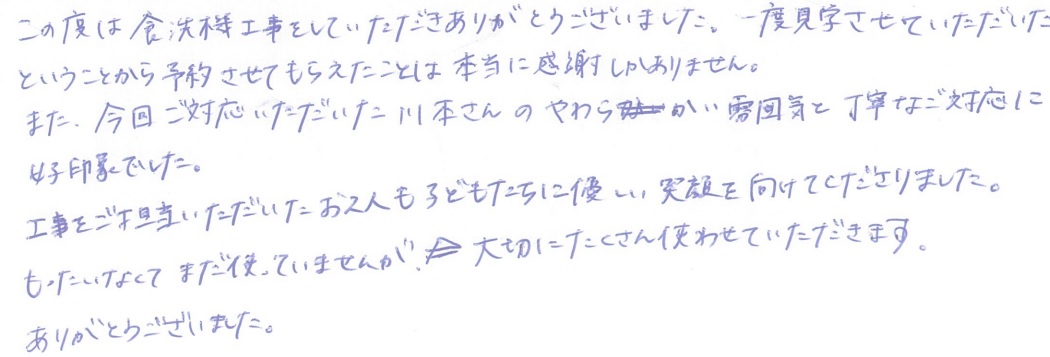 この度は食洗機工事をしていただきありがとうございました。一度見学させていただいた
ということから予約させてもらえたことは本当に感謝しかありません。
また、今回ご対応いただいた川本さんのやわらかい雰囲気と丁寧なご対応に
好印象でした。
工事をご担当いただいたお2人も子どもたちに優しい笑顔を向けてくださりました。
もったいなくてまだ使っていませんが、大切にたくさん使わせていただきます。
ありがとうございました。